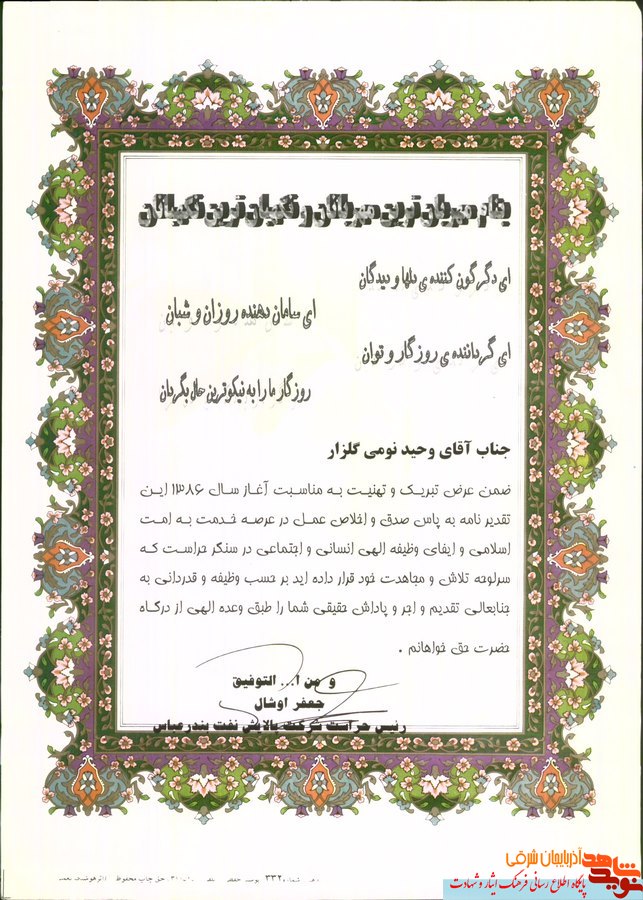 بنام مهربان ترین مهربانان و نگهبان ترین نگهبانان
ای دگرگون کننده ی دلها و دیدگان
ای سامان دهنده روزان و شبان
ای گرداننده ی روزگار و توان
روزگار ما را به نیکوترین حال بگردان
جناب آقای وحید نومی گلزار
ضمن عرض تبریک و تهنیت به مناسبت آغاز سال ۱۳۸۶ این
تقدیر نامه به پاس صدق و اخلاص عمل در عرصه خدمت به امت
اسلامی و ایفای وظیفه الهی انسانی و اجتماعی در سنگر حراست که
سرلوحه تلاش و مجاهدت خود قرار داده اید بر حسب وظیفه و قدردانی به
جنابعالی تقدیم و اجر و پاداش حقیقی شما را طبق وعده الهی از درگاه
حضرت حق خواهانم .
و من ا... التوفیق
جعفر اوشال
رئیس حراست شرکت پالایش نفت بندرعباس
شماره ۳۳۲ حق چاپ محفوظ
نوید شاهد آذربایجان شرقی
پایگاه اطلاع رسانی فرهنگ ایثار و شهادت